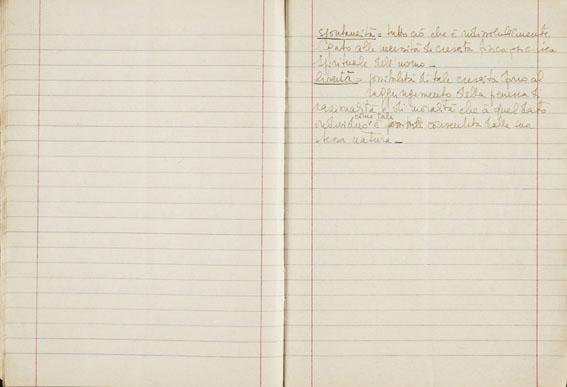 spontaneità = tutto ciò che è indissolubilmente
legato alle necessità di crescita fisica, psichica
spirituale dell'uomo _
libertà = possibilità di tale crescita fino al
raggiungimento della pienezza di
razionalità e di moralità che a quel dato
individuo come tale è consentita dalla sua
stessa natura _